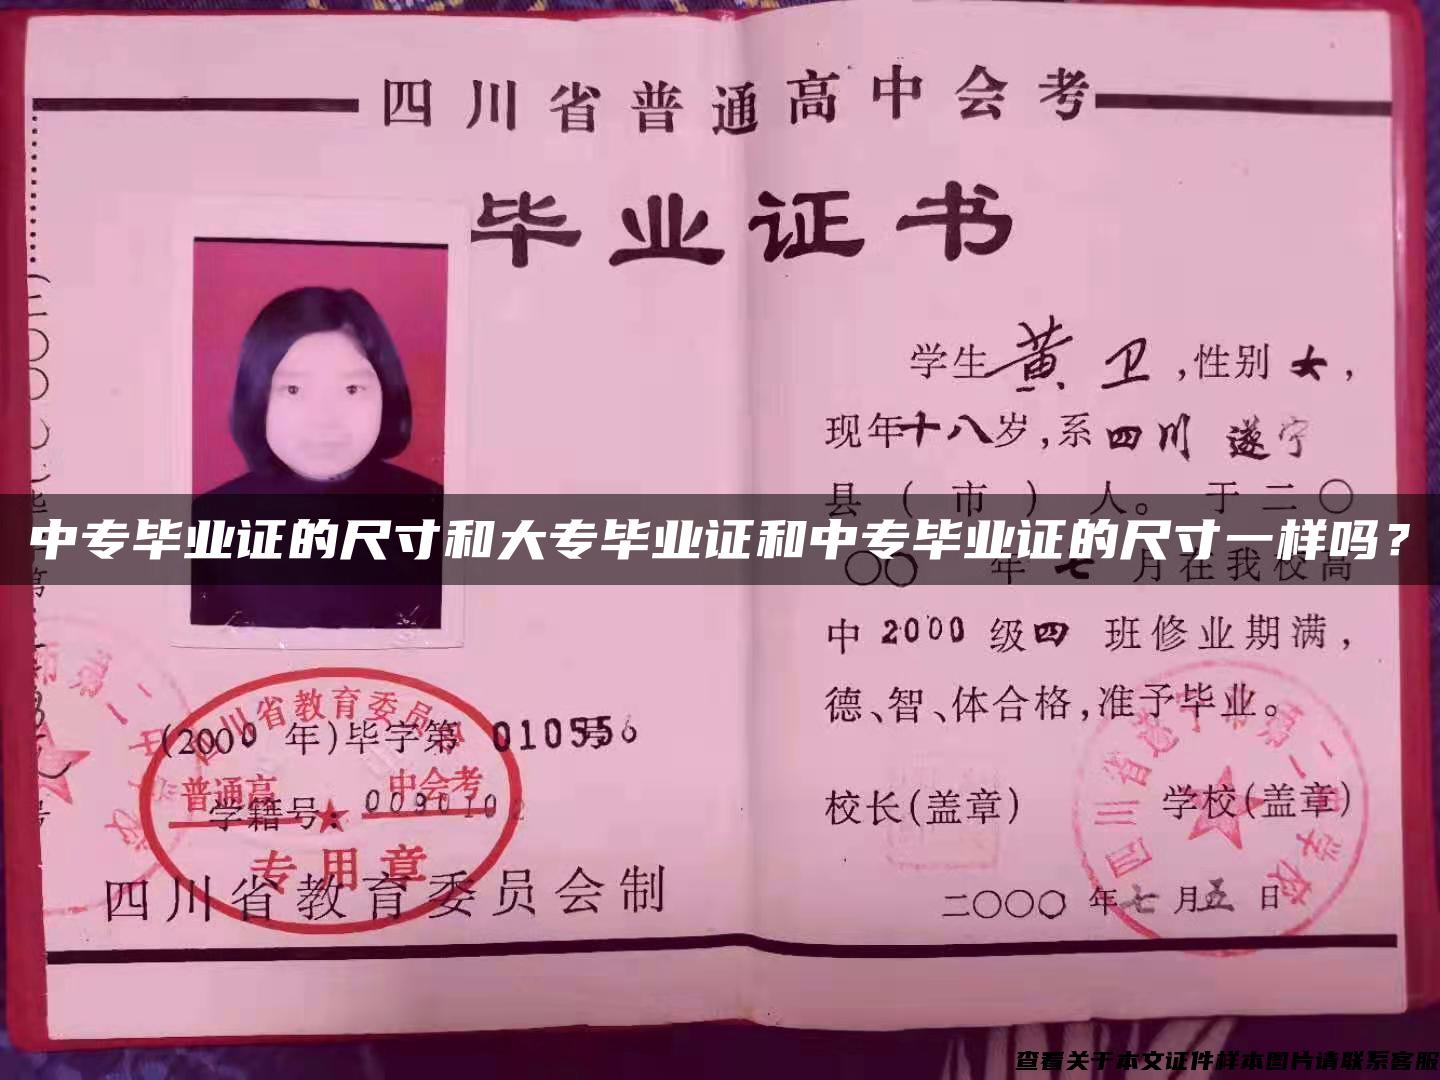 四川省普通高中会考
毕业证书
学生黄卫,性别女,
现年十八岁,系四川遂宁
县(市)人。于二〇
〇〇年七月在我校高
中2000级四班修业期满,
德、智、体合格,准予毕业。
校长(盖章) 学校(盖章)
二〇〇〇年七月五日
中专毕业证的尺寸和大专毕业证和中专毕业证的尺寸一样吗？
(2000年)毕字第010556号
学籍号:
四川省教育委员会
普通高 中会考
专用章
四川省教育委员会制
四川省遂宁市第二中学校
查看关于本文证件样本图片请联系客服